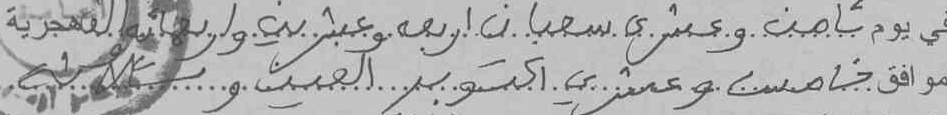 في يوم ثامن وعشري سعبان اربعه وعشرين واربعمائه الهجرية
موافق خامس وعشري اكتوبر الفين و